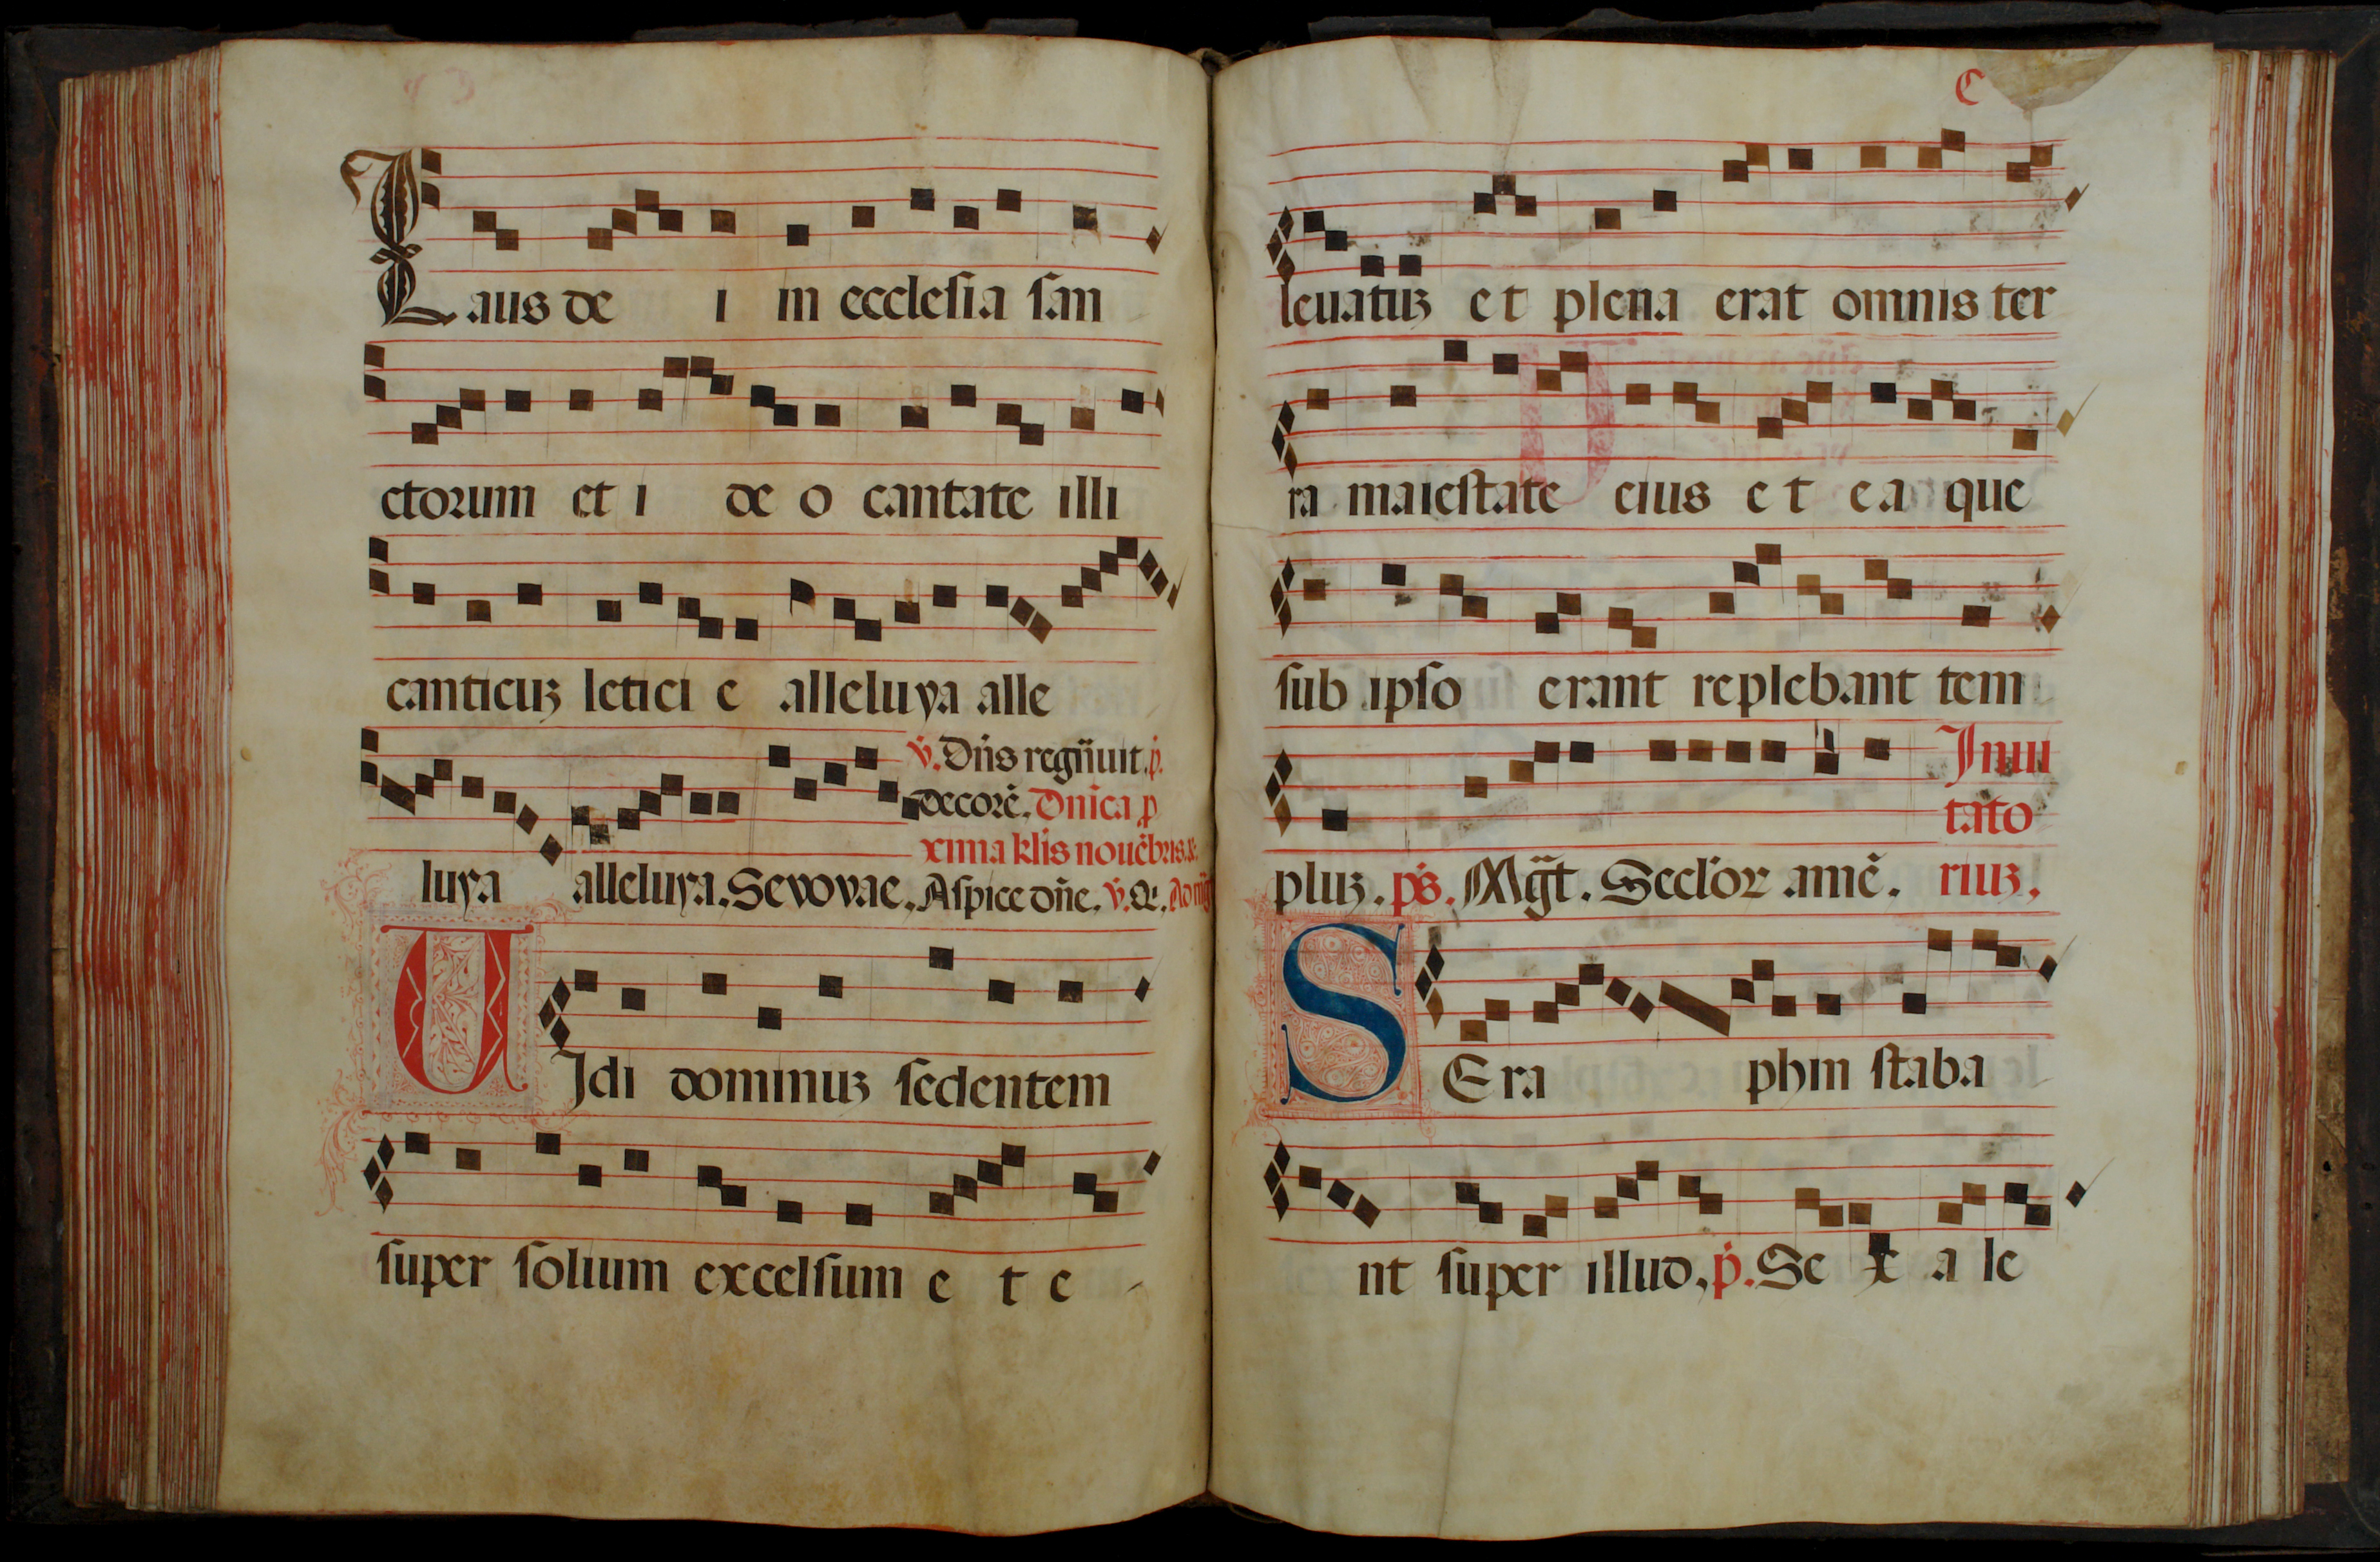 Laus de i in ecclesia san
ctorum et i de o cantate illi
canticuz letici e alleluya alle
v. Dñs regñuit. p.
decorē. Dnīca p
xima klīs nouēbris. &.
luya alleluya. Sevovae. Aspice dñe. v. &.
UIdi dominuz sedentem
super solium excelsum e t e
C
leuatuz et plena erat omnis ter
ra maiestate eius et ea que
sub ipso erant replebant tem
Inui
tato
pluz. ps. Mḡt. Seclor amē. riuz.
SEra phin staba
nt super illud. p. Se x a le